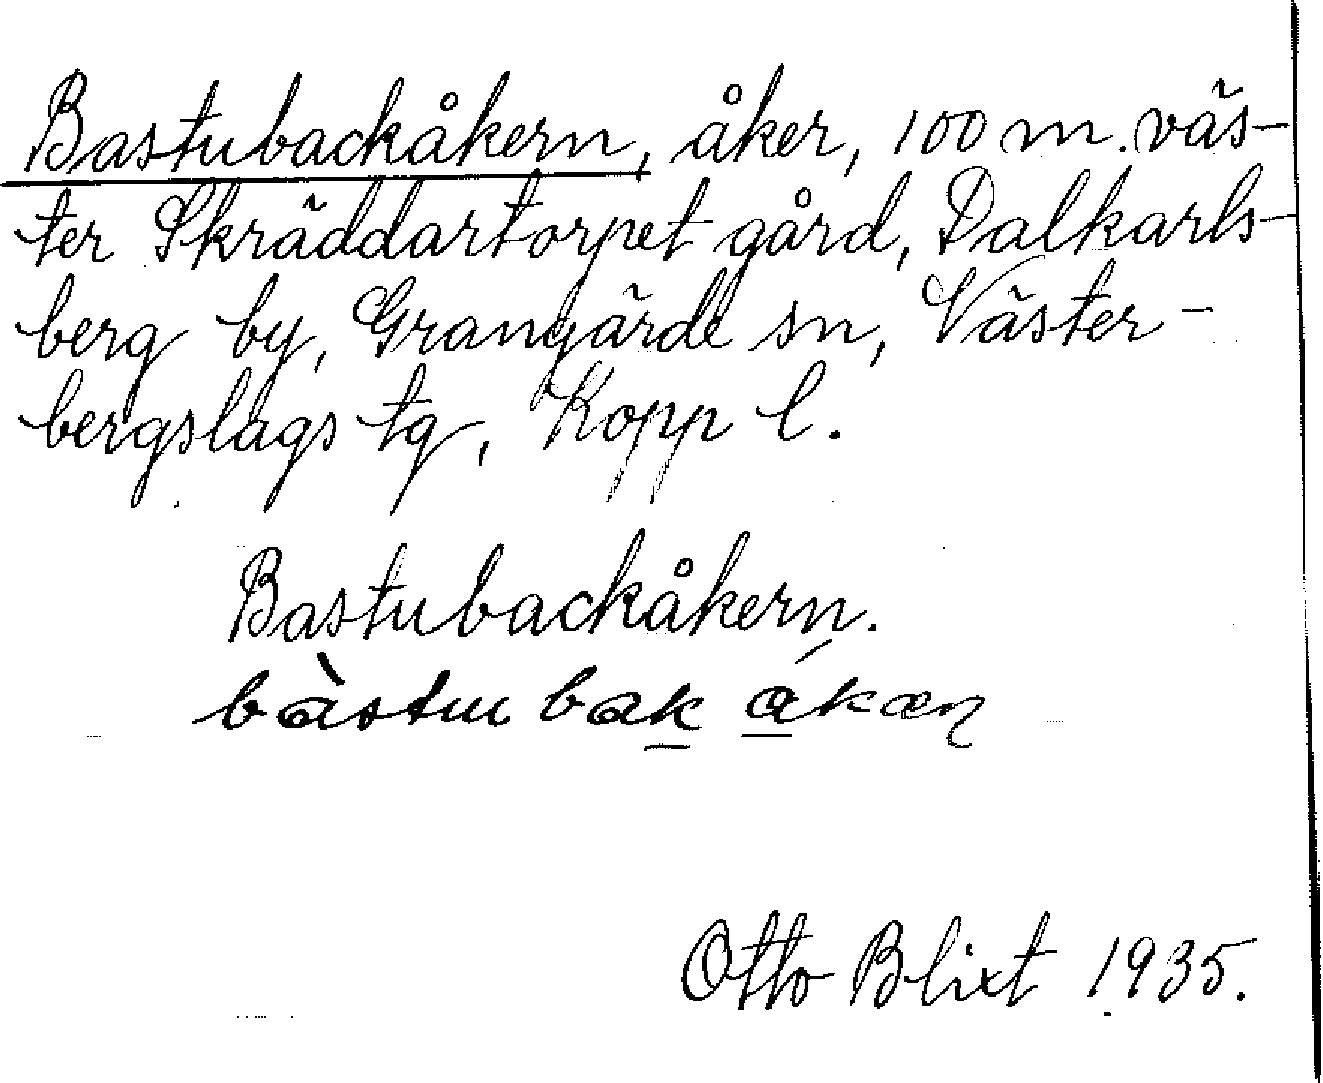 Bastubackåkern, åker, 100 m. väs-
ter Skräddartorpet gård, Dalkarls-
berg by, Grangärde sn, Väster-
bergslags tg, Kopp l.
Bastubackåkern.
bàstu bak ákæɳ
Otto Blixt 1935.